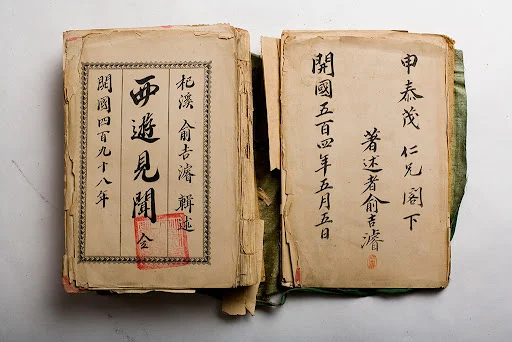 申泰茂 仁兄 閣下
著述者俞吉濬
開國五百四年五月五日
杞溪 俞吉濬 輯述
西遊見聞 全
開國四百九十八年